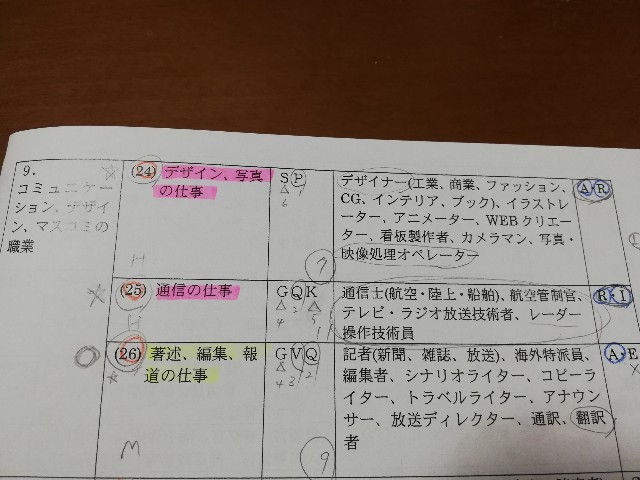 9.
コミュニケー
ション、デザイ
ン、マスコミの
職業
(24) デザイン、写真
の仕事
H
S P
6 1
7
デザイナー(工業、商業、ファッション、
CG、インテリア、ブック)、イラストレ
ーター、アニメーター、WEBクリエー
ター、看板製作者、カメラマン、写真・
映像処理オペレーター
A・R
(25) 通信の仕事
H
G Q K
4 2 5
通信士(航空・陸上・船舶)、航空管制官、
テレビ・ラジオ放送技術者、レーダー
操作技術員
R・I
(26) 著述、編集、報
道の仕事
M
G V Q
4 3 2
9
記者(新聞、雑誌、放送)、海外特派員、
編集者、シナリオライター、コピーラ
イター、トラベルライター、アナウン
サー、放送ディレクター、通訳、翻訳
者
A・E